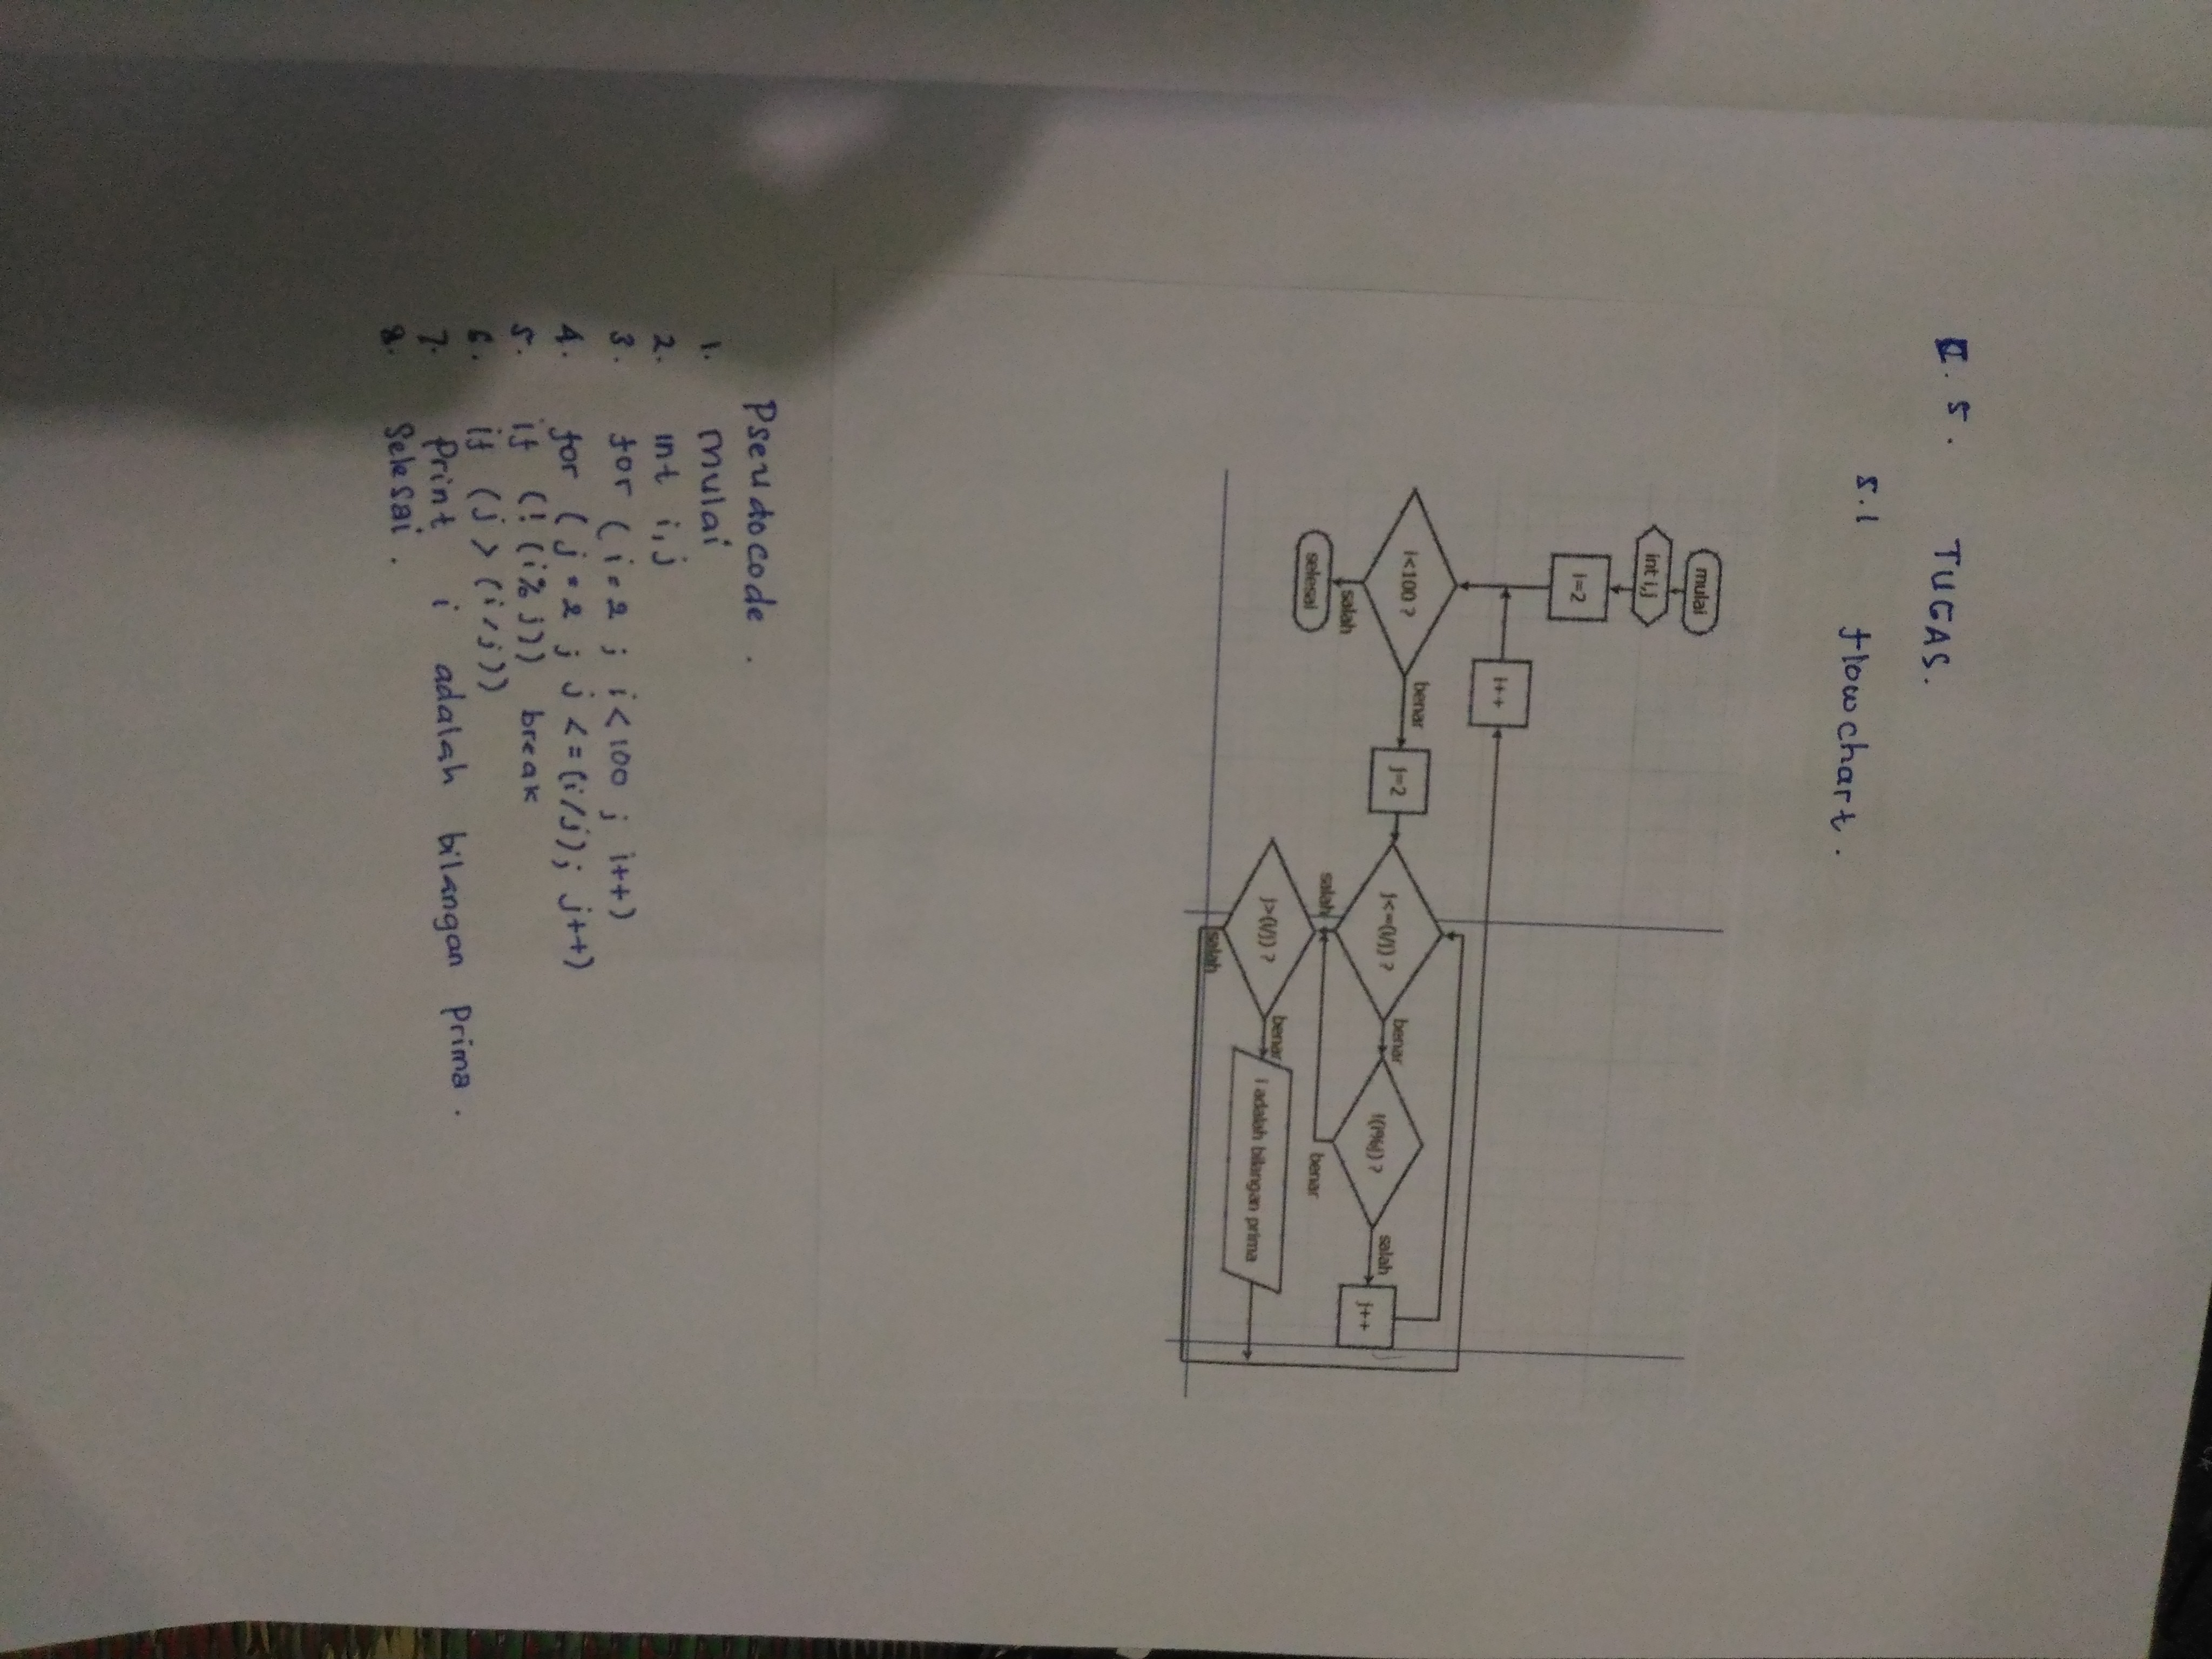 5. TUGAS.
5.1 flowchart.
mulai
int i,j
i=2
i++
i<100 ?
benar
j=2
j<=(i/j) ?
benar
!(i%j) ?
salah
j++
salah
selesai
salah
benar
j>(i/j) ?
benar
i adalah bilangan prima
salah
Pseudocode.
1. mulai
2. int i,j
3. for (i=2 ; i<100 ; i++)
4. for (j=2 ; j<=(i/j); j++)
5. if (!(i%j)) break
6. if (j > (i/j))
7. Print i adalah bilangan Prima.
8. Selesai.